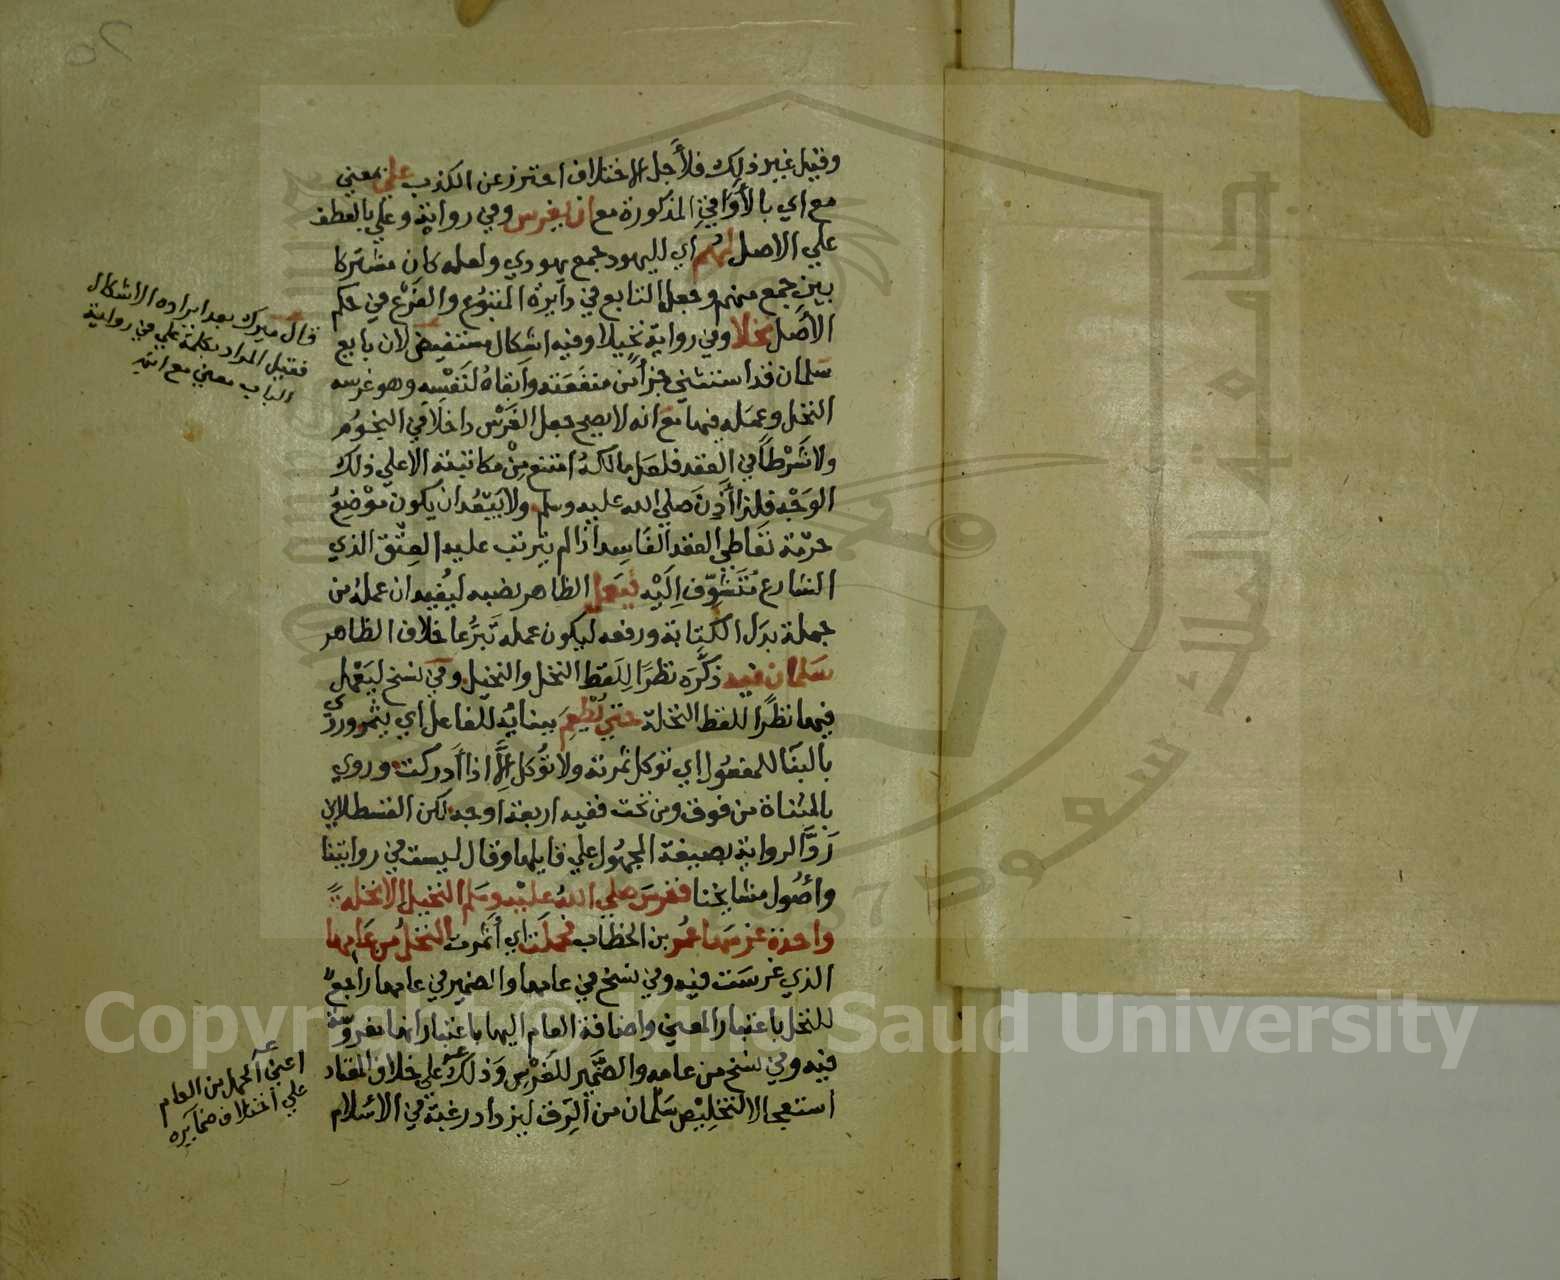 وقيل غير ذلك فلأجل الاختلاف احترز عن الكذب على بمعني
مع اي بالأواقي المذكورة مع ان يغرس وفي رواية وعلي بالعطف
علي الاصل لهم اي لليهود جمع يهودي ولعله كان مشتركا
بين جمع منهم وجعل التابع في دايرة المتبوع والفرع في حكم
الأصل نخلا وفي رواية نخيلا وفيه اشكال مستفيض لان بايع
سلمان قد استثني جزأ من منفعته وابقاه لنفسه وهو غرسه
النخل وعمله فيها مع انه لا يصح جعل الغرس داخلا في النجوم
ولا شرطا في العقد فلعل مالكه امتنع من مكاتبته الا علي ذلك
الوجه فلذا أذن صلي الله عليه وسلم ولا يبعد ان يكون موضع
حرمة تعاطي العقد الفاسد اذا لم يترتب عليه العتق الذي
الشارع متشوف اليه فيعمل الظاهر نصبه ليفيد ان عمله من
جملة بدل الكتابة ورفعه ليكون عمله تبرعا خلاف الظاهر
سلمان فيه ذكره نظرا للفظ النخل والنخيل وفي نسخ ليعمل
فيها نظرا للفظ النخلة حتي تطعم ببنايه للفاعل اي يثمر وروي
بالبنا للمفعول اي توكل ثمرته ولا تؤكل إلا اذا أدركت وروي
بالمثناة من فوق ومن تحت ففيه اربعة اوجه لكن القسطلاني
رد الرواية بصيغة المجهول علي قايلها وقال ليست في روايتنا
وأصول مشايخنا فغرس صلي الله عليه وسلم النخيل الا نخلة
واحدة غرسها عمر بن الخطاب فحملت اي أثمرت النخل من عامها
الذي غرست فيه وفي نسخ في عامها والضمير في عامها راجع
للنخل باعتبار المعني واضافة العام اليها باعتبار انها مغروسة
فيه وفي نسخ من عامه والضمير للغرس وذلك علي خلاف المعتاد
استعجالا لتخليص سلمان من الرق ليزداد رغبة في الاسلام
قال ميرك بعد ايراده الاشكال
فقيل المراد بكلمة علي في رواية
الباب معني مع انتهي
اعني الحمل من العام
علي اختلاف ضمايره
Copyright © King Saud University
جامعة الملك سعود
1957